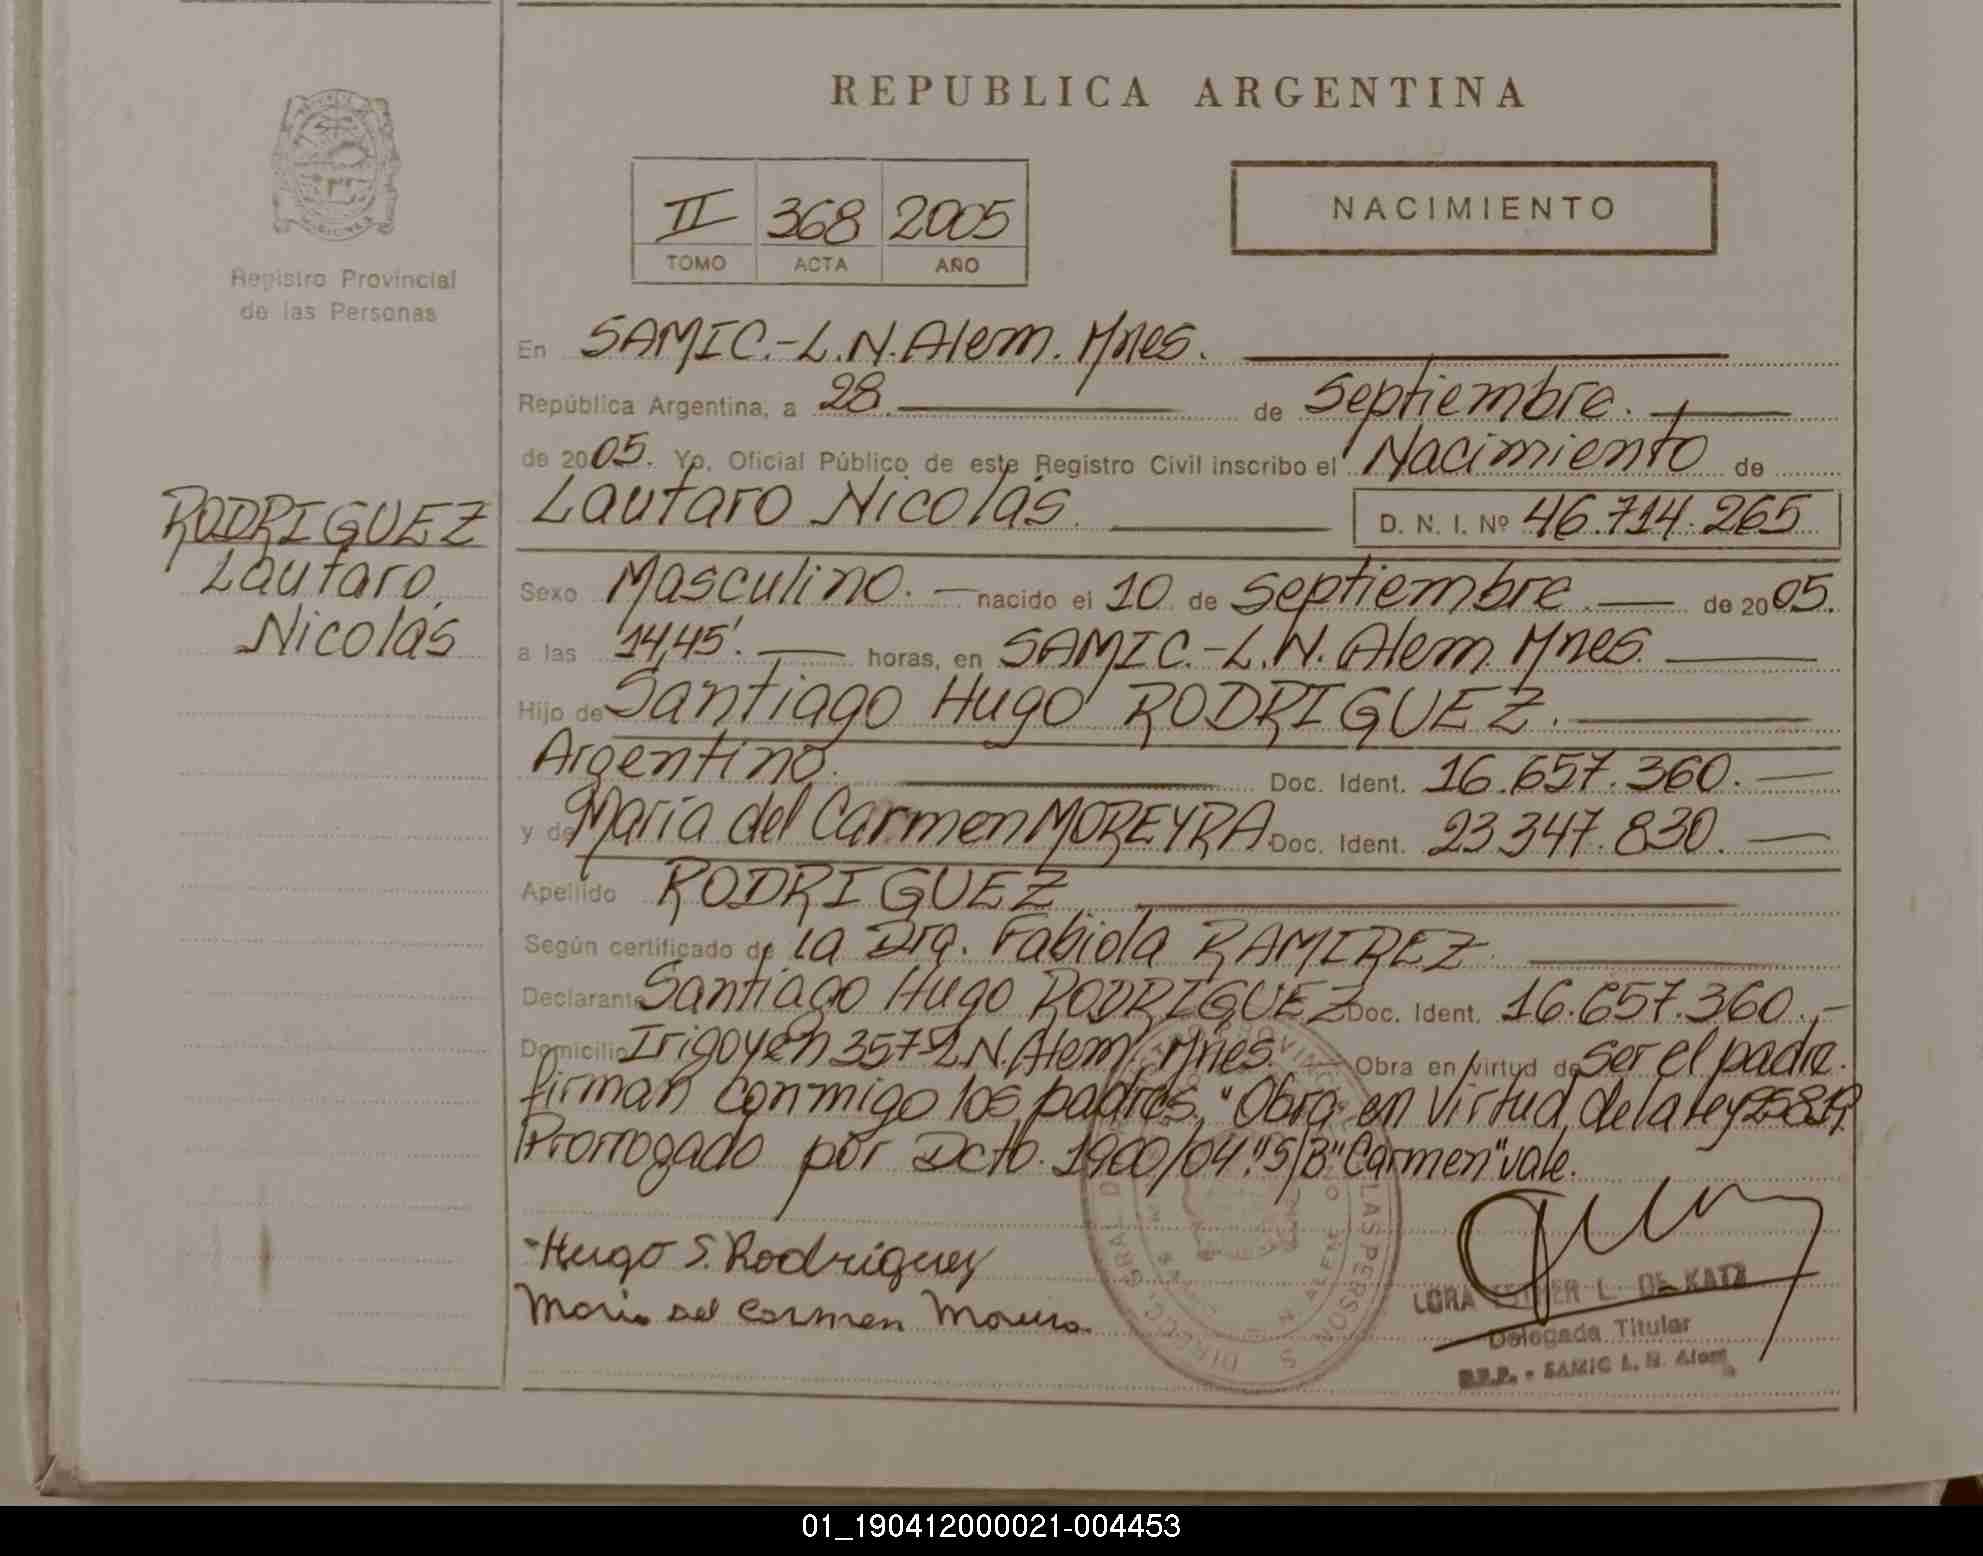 REPUBLICA ARGENTINA
II 368 2005
TOMO ACTA AÑO
NACIMIENTO
Registro Provincial
de las Personas
RODRIGUEZ
Lautaro
Nicolás
En SAMIC.-L.N.Alem. Mnes.
República Argentina, a 28 de Septiembre.
de 2005. Yo, Oficial Público de este Registro Civil inscribo el Nacimiento de
Lautaro Nicolás. D. N. I. Nº 46.714.265
Sexo Masculino. nacido el 10 de Septiembre de 2005.
a las 14,45'. horas, en SAMIC.-L.N. Alem. Mnes.
Hijo de Santiago Hugo RODRIGUEZ.
Argentino. Doc. Ident. 16.657.360.
y de María del Carmen MOREYRA Doc. Ident. 23.347.830.
Apellido RODRIGUEZ
Según certificado de la Dra. Fabiola RAMIREZ
Declarante Santiago Hugo RODRIGUEZ Doc. Ident. 16.657.360.-
Domicilio Irigoyen 357-L.N.Alem. Mnes. Obra en virtud de ser el padre.
firman conmigo los padres. "Obra en virtud de la ley 25819
Prorrogado por Dcto. 1900/04". S/B "Carmen" vale.
Hugo S. Rodriguez
Maria del Carmen
ESTHER L. DE KATZ
Delegada Titular
R.P.P. - SAMIC L. N. Alem
LAS PERSONAS
L. N. ALEM
01_190412000021-004453